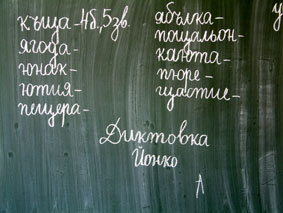 къща-4б, 5зв.
ягода-
юнак-
ютия-
пещера-
ябълка-
пощальон-
каюта-
пюре-
щастие-
Диктовка
Йонко